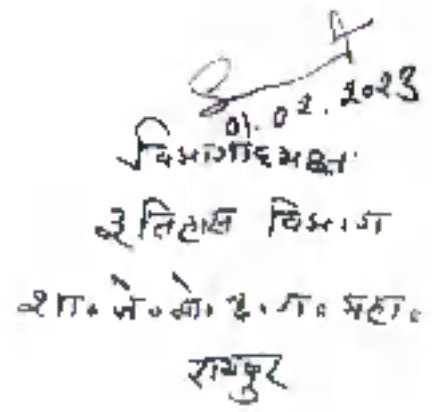 01.02.2023
विभागाध्यक्ष
इतिहास विभाग
शा. जे. यो. छ. ग. महा.
रायपुर